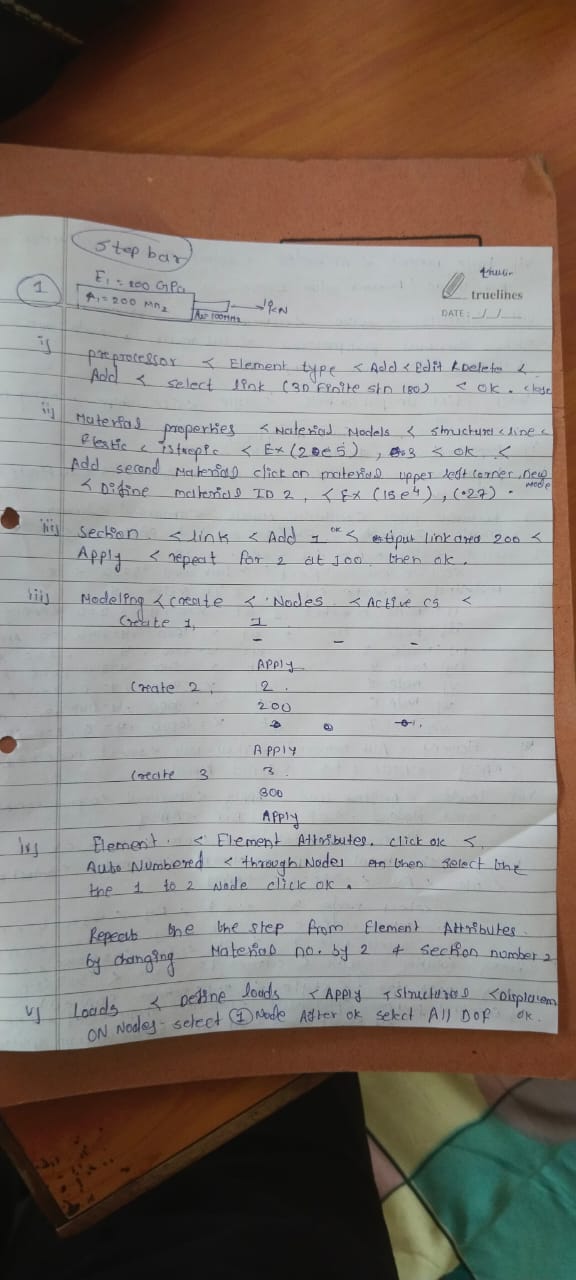 Step bar
1
E1 = 200 GPa
A1 = 200 mm2
A2=100mm2
1kN
truelines
DATE: / /
i) preprocessor < Element type < Add < Edit & Delete <
Add < select link (3D Finite stn 180) < OK. close
ii) Material properties < Material Models < structural < line <
Elastic < istropic < Ex (20e5), 0.3 < ok <
Add second Material click on material upper left corner, new
mode
< Difine material ID 2, < Ex (15e4), (.27).
iii) Section < link < Add 1 ok < link area 200 <
Apply < repeat for 2 at 100 then ok.
iii) Modeling < create < Nodes < Active CS <
Create 1, 1
- - -
APPly
Create 2, 2.
200
0 0 0.
APPly
Create 3 3.
300
APPly
iv) Element. < Element Attributes. click ok <
Auto Numbered < through Nodes then select the
the 1 to 2 Node click ok.
Repeat the the step from Element Attributes
by changing Material no. by 2 & section number 2
v) Loads < Define loads < Apply < structural < Displacem
ON Nodes select 1 Node After ok select All DOF ok.